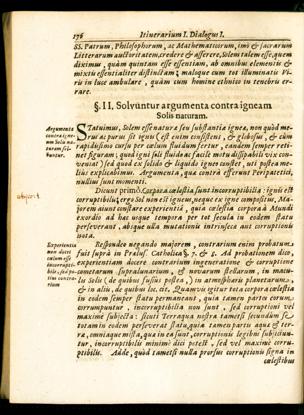 176 Itinerarium I. Dialogus I.
SS. Patrum, Philosophorum, ac Mathematicorum, imò & sacrarum
Litterarum auctoritatem, credere & asserere, Solem talem esse, quem
diximus, quàm quintam esse essentiam, ab omnibus elementis &
mixtis essentialiter distinctam; maloque cum tot illuminatis Vi-
ris in luce ambulare, quàm cum homine ethnico in tenebris er-
rare.
§. II. Solvuntur argumenta contra igneam
Solis naturam.
Argumenta
contra igne-
am Solis na-
turam sol-
vuntur.
Statuimus, Solem esse naturæ seu substantiæ igneæ, non quòd me-
rus ac purus sit ignis (est enim consistens, & globosus, & cùm
rapidissimo cursu per cælum fluidum fertur, eandem semper reti-
net figuram; quod igni soli fluido ac facilè motu dissipabili vix con-
venit) sed quòd ex solido & liquido igneo constet, uti postea me-
lius explicabimus. Argumenta, quæ contrà efferunt Peripatetici,
nullius sunt momenti.
Dicunt primò, Corpora cælestia sunt incorruptibilia: ignis est
corruptibilis; ergo Sol non est igneus, neque ex igne compositus. Ma-
jorem aiunt constare experientiâ, quia cælestia corpora à Mundi
exordio ad hæc usque tempora per tot sæcula in eodem statu
perseverant, absque ulla mutationis intrinsecæ aut corruptionis
nota.
Experientia
non docet
cælum esse
incorrupti-
bile, sed po-
tiùs contra-
rium
Respondeo negando majorem, contrarium enim probatum
fuit suprà in Prælus. Cathol. Ad probationem dico,
Experientiam docere contrarium in generatione & corruptione
cometarum supralunarium, & novarum stellarum, in macu-
lis Solis (de quibus fusiùs postea,) in atmosphæris planetarum,
& in aliis, de quibus loc. cit. Quamvis igitur tota corpora cælestia
in eodem semper statu permaneant, quia tamen partes eorum
corrumpuntur, incorruptibilia non sunt, sed corruptioni vel
maximè subjecta: sicuti Terraqua nostra tametsi secundùm se
totam in eodem perseverat statu, quia tamen partes aquæ & ter-
ræ, omniaque mista, quæ in ea sunt, corruptionis legibus subjiciun-
tur, incorruptibilis minimè dici potest, sed vel maximè corru-
ptibilis. Adde, quòd tametsi nulla prorsus corruptionis signa in
cælestibus